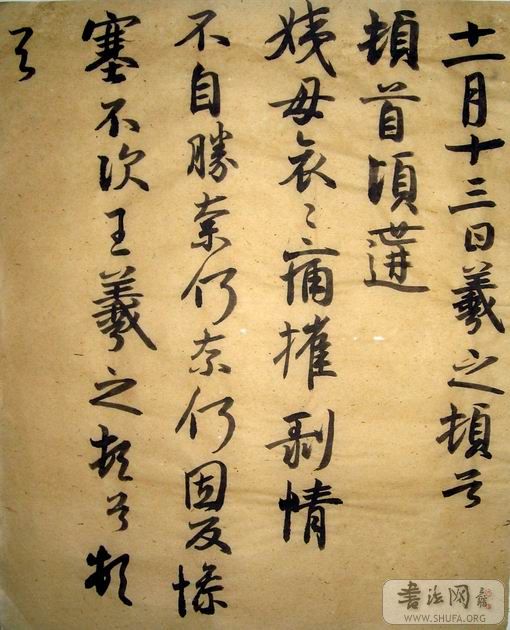 十一月十三日羲之頓首
頓首頃遘
姨母哀〻痛摧剝情
不自勝奈何奈何因反慘
塞不次王羲之頓首頓
首
書法网
WWW.SHUFA.ORG